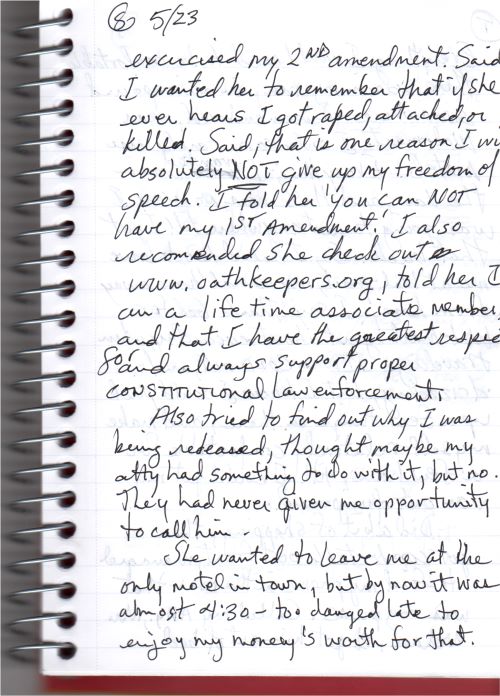 ⑧ 5/23
excercised my 2ND amendment. Said
I wanted her to remember that if she
ever hears I got raped, attacked, or
killed. Said, that is one reason I wi
absolutely NOT give up my freedom of
speech. I told her 'you can NOT
have my 1ST Amendment.' I also
recomended she check out
www.oathkeepers.org, told her I
am a life time associate member,
and that I have the greatest respec
for and always support proper
CONSTITUTIONAL law enforcement.
Also tried to find out why I was
being released, thought maybe my
atty had something to do with it, but no.
They had never given me opportunity
to call him.
She wanted to leave me at the
only motel in town, but by now it was
almost 4:30 - too danged late to
enjoy my money's worth for that.